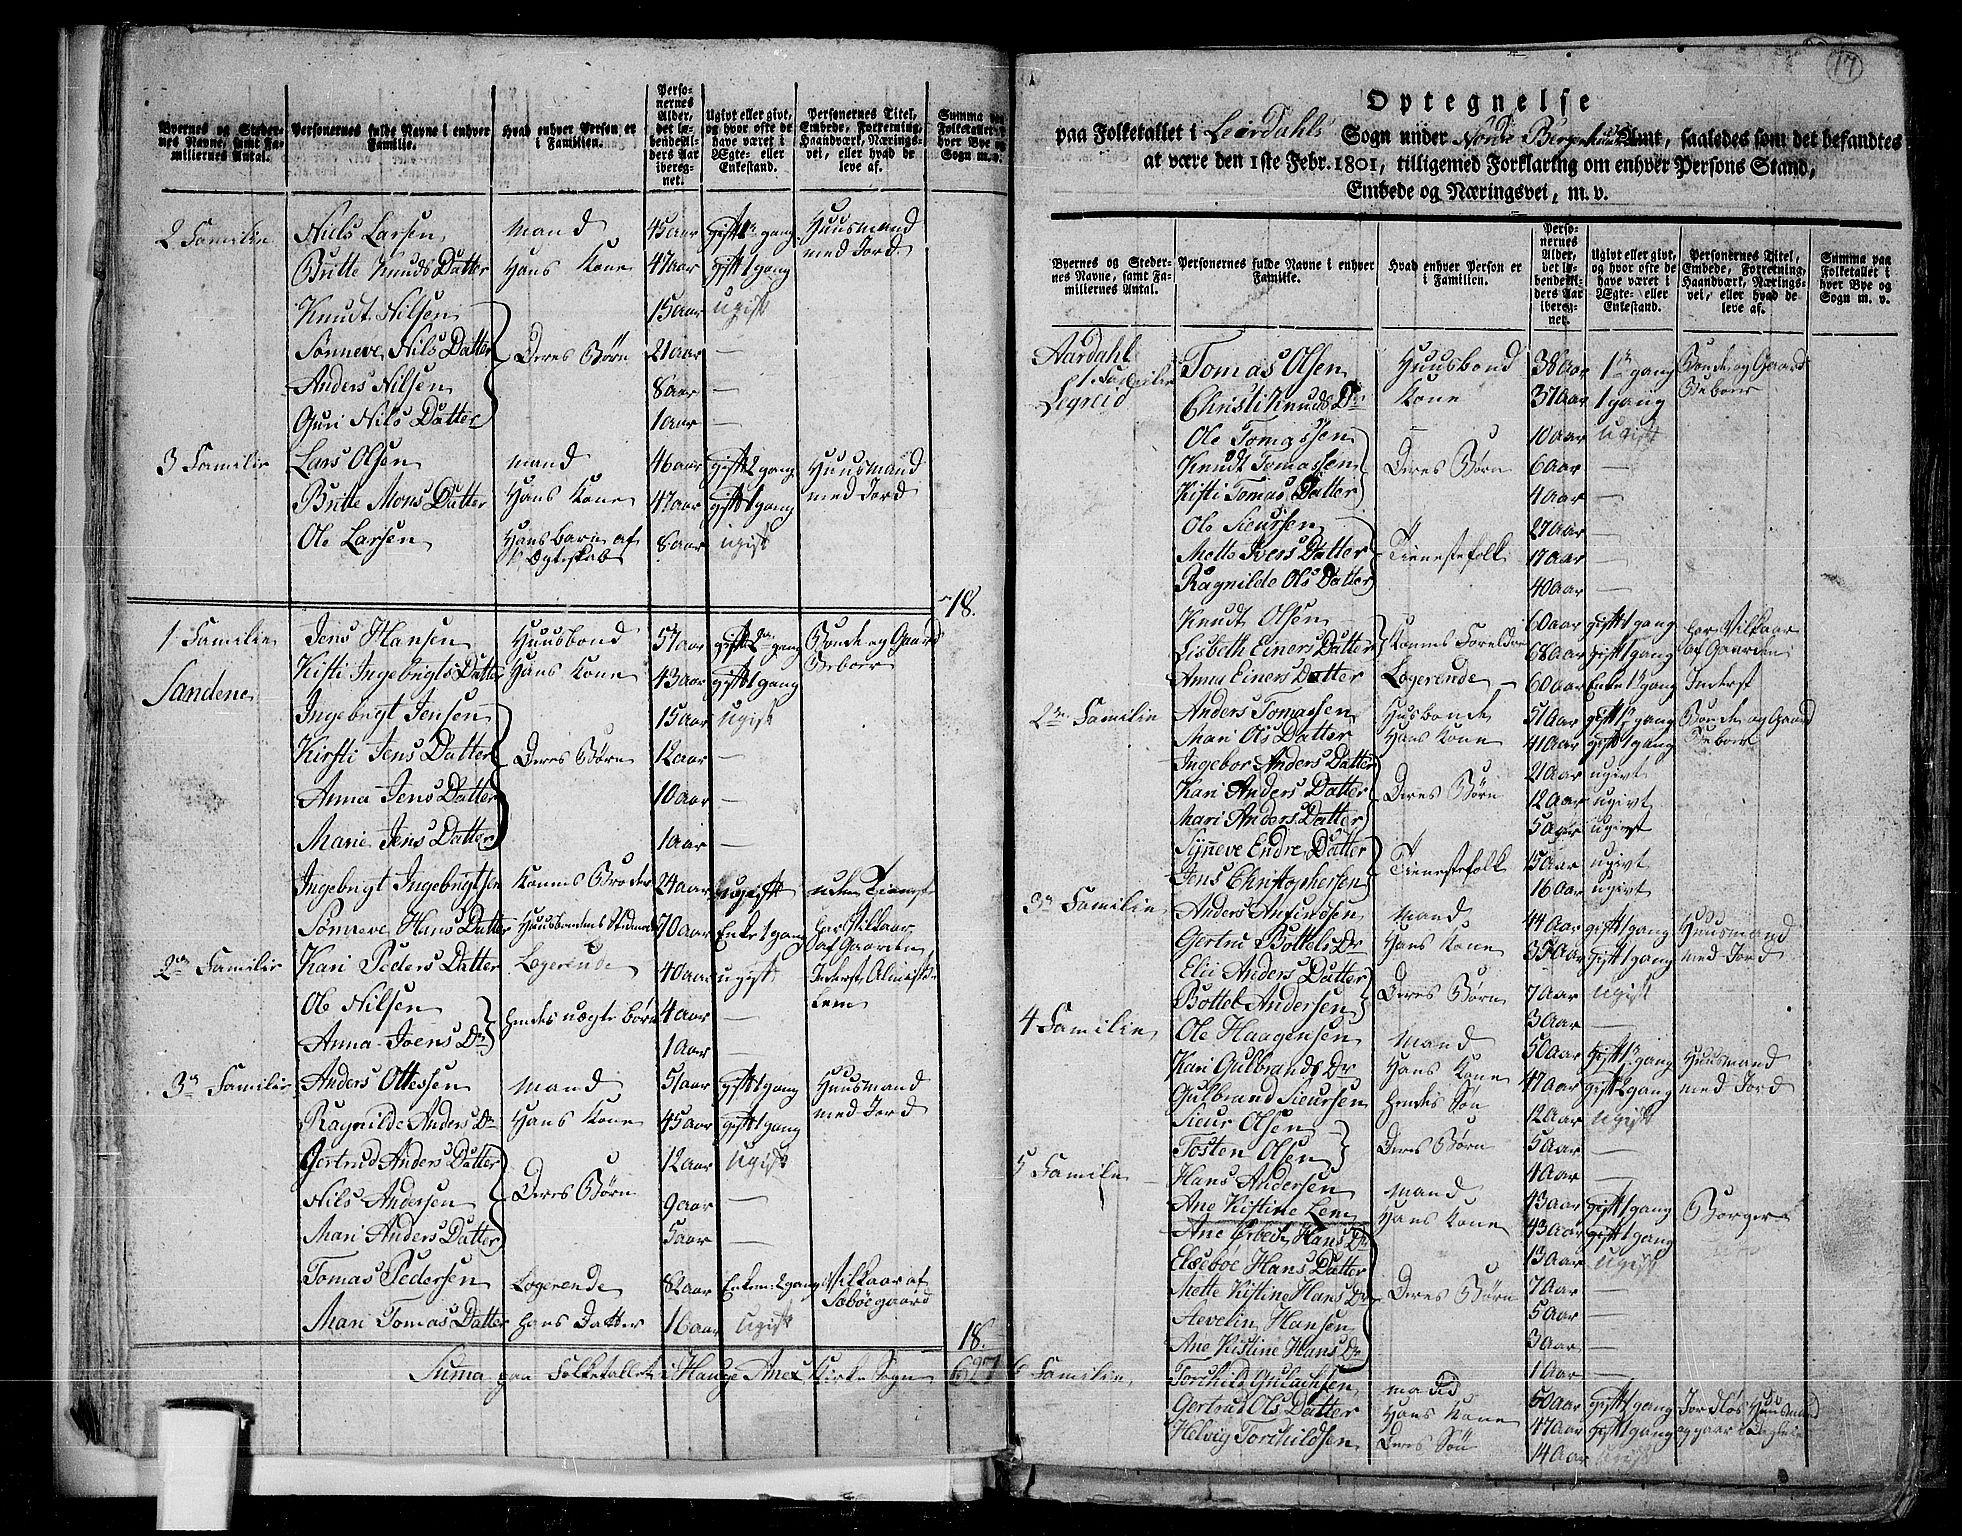 Byernes og Steder-
nes Navne, samt Fa-
miliernes Antal.
Personernes fulde Navne i enhver
Familie.
Hvad enhver Person er
i Familien.
Perso-
nernes
Alder,
det lø-
bendeAl-
ders Aar
iberegnet.
Ugivt eller givt,
og hvor ofte de
have været i
Ægte- eller
Enkestand.
Personernes Titel,
Embede, Forretning,
Haandværk, Nærings-
vei, eller hvad de
leve af.
Summa paa
Folketallet i
hver Bye og
Sogn m. v.
2 Familie Niels Larsen mand 45 aar gift 2 gang Huusmand
med Jord
Britte Knuds Datter Hans Kone 47 aar gift 1 gang
Knudt Nilsen 15 aar ugift
Sønneve Nils Datter Deres Børn 21 aar —
Anders Nilsen 8 aar —
Guri Nils Datter 1 aar —
3 Familie Lars Olsen mand 46 aar gift 2 gang Huusmand
med Jord
Britte Mons Datter Hans Kone 47 aar gift 1 gang
Ole Larsen Hans barn af
1te Ægteskab 8 aar ugift
18.
1 Familie Jens Hansen Huusbond 57 aar gift 2den gang Bonde og Gaard
Beboer
Sandene Kisti Ingebrigts Datter Hans Kone 43 aar gift 1 gang
Ingebrigt Jensen 15 aar ugift
Kirsti Jens Datter Deres Børn 12 aar —
Anna Jens Datter 10 aar —
Marie Jens Datter 1 aar —
Ingebrigt Ingebrigtsen Konens Broder 24 aar ugift
Sønneve Hans Datter 70 aar Enke 1 gang har Vilkaar
af Gaarden
2den Familie Kari Peders Datter Logerende 40 aar ugift Inderst Almisse
Lem
Ole Nilsen Hendes uægte børn 4 aar —
Anna Joens Dr 1 aar —
3die Familie Anders Ottessen mand 51 aar gift 1 gang Huusmand
med Jord
Ragnilde Anders Dr Hans Kone 45 aar gift 1 gang
Gertrud Anders Datter 12 aar ugift
Nils Andersen Deres Børn 9 aar —
Mari Anders Datter 5 aar —
Tomas Pedersen Logerende 82 aar Enkem. 2 gang Vilkaar af
Sæbøe gaard
Mari Tomas Datter Hans Datter 16 aar ugift
18.
Suma paa Folketallet i Hauge Anex Kirke Sogn 627
17
Optegnelse
paa Folketallet i Leirdahls Sogn under Nordre Bergenhuus Amt, saaledes som det befandtes
at være den 1ste Febr. 1801, tilligemed Forklaring om enhver Persons Stand,
Embede og Næringsvei, m. v.
Byernes og Steder-
nes Navne, samt Fa-
miliernes Antal.
Personernes fulde Navne i enhver
Familie.
Hvad enhver Person er
i Familien.
Perso-
nernes
Alder,
det lø-
bendeAl-
ders Aar
iberegnet.
Ugivt eller givt,
og hvor ofte de
have været i
Ægte- eller
Enkestand.
Personernes Titel,
Embede, Forretning,
Haandværk, Nærings-
vei, eller hvad de
leve af.
Summa paa
Folketallet i
hver Bye og
Sogn m. v.
Aardahl Tomas Olsen Huusbond 38 aar 1 gang Bonde og Gaard
Beboer
1 Familie
Legreid Christi Knuds Dr Kone 37 aar 1 gang
Ole Tomassen 10 aar ugift
Knudt Tomassen Deres Børn 6 aar —
Kisti Tomas Datter 4 aar —
Ole Sieursen 27 aar —
Mette Ivers Datter Tienestefolk 17 aar —
Ragnilde Ols Datter 40 aar
Knudt Olsen 60 aar gift 1 gang har Vilkaar
af Gaarden
Lisbeth Einers Datter Konens Foreldre 68 aar gift 1 gang
Anna Einers Datter Logerende 60 aar Enke 1 gang Inderst
2den Familie Anders Tomassen Husbonde 51 aar gift 1 gang Bonde og Gaard
Beboer
Mari Ols Datter Hans Kone 41 aar gift 1 gang
Ingebor Anders Datter 21 aar ugivt
Kari Anders Datter Deres Børn 12 aar ugivt
Mari Anders Datter 5 aar ugivt
Synneve Endre Datter Tienestefolk 15 aar ugivt
Jens Christophersen 16 aar ugivt
3die Familie Anders Anfindsen Mand 44 aar gift 1 gang Huusmand
med Jord
Gertru Bottels Dr Hans Kone gift 1 gang
Elii Anders Datter Deres Børn 7 aar ugift
Bottel Andersen 3 aar —
4 Familie Ole Haagensen mand 50 aar gift 1 gang Huusmand
med Jord
Kari Gulbrands Dr Hans Kone 47 aar gift 2 gang
Gulbrand Sieursen Hendes Søn 12 aar ugift
Sieur Olsen Deres Børn 5 aar —
Tosten Olsen 4 aar —
5 Familie Hans Andersen mand 43 aar gift 1 gang Borger
Ane Kistine Lem Hans Kone 43 aar gift 1 gang
Ane Hans Dr 13 aar ugift
Elsebøe Hans Datter 7 aar —
Mette Kistine Hans Dr Deres Børn 5 aar —
Stevelin Hansen 3 aar —
Ane Kistine Hans Dr 1 aar —
6 Familie Torchild Gulachsen mand 50 aar gift 1 gang Jordløs Huusmand
Gertrud Ols Datter Hans Kone 47 aar gift 1 gang
Helvig Torchildsen Deres Søn 14 aar ugift